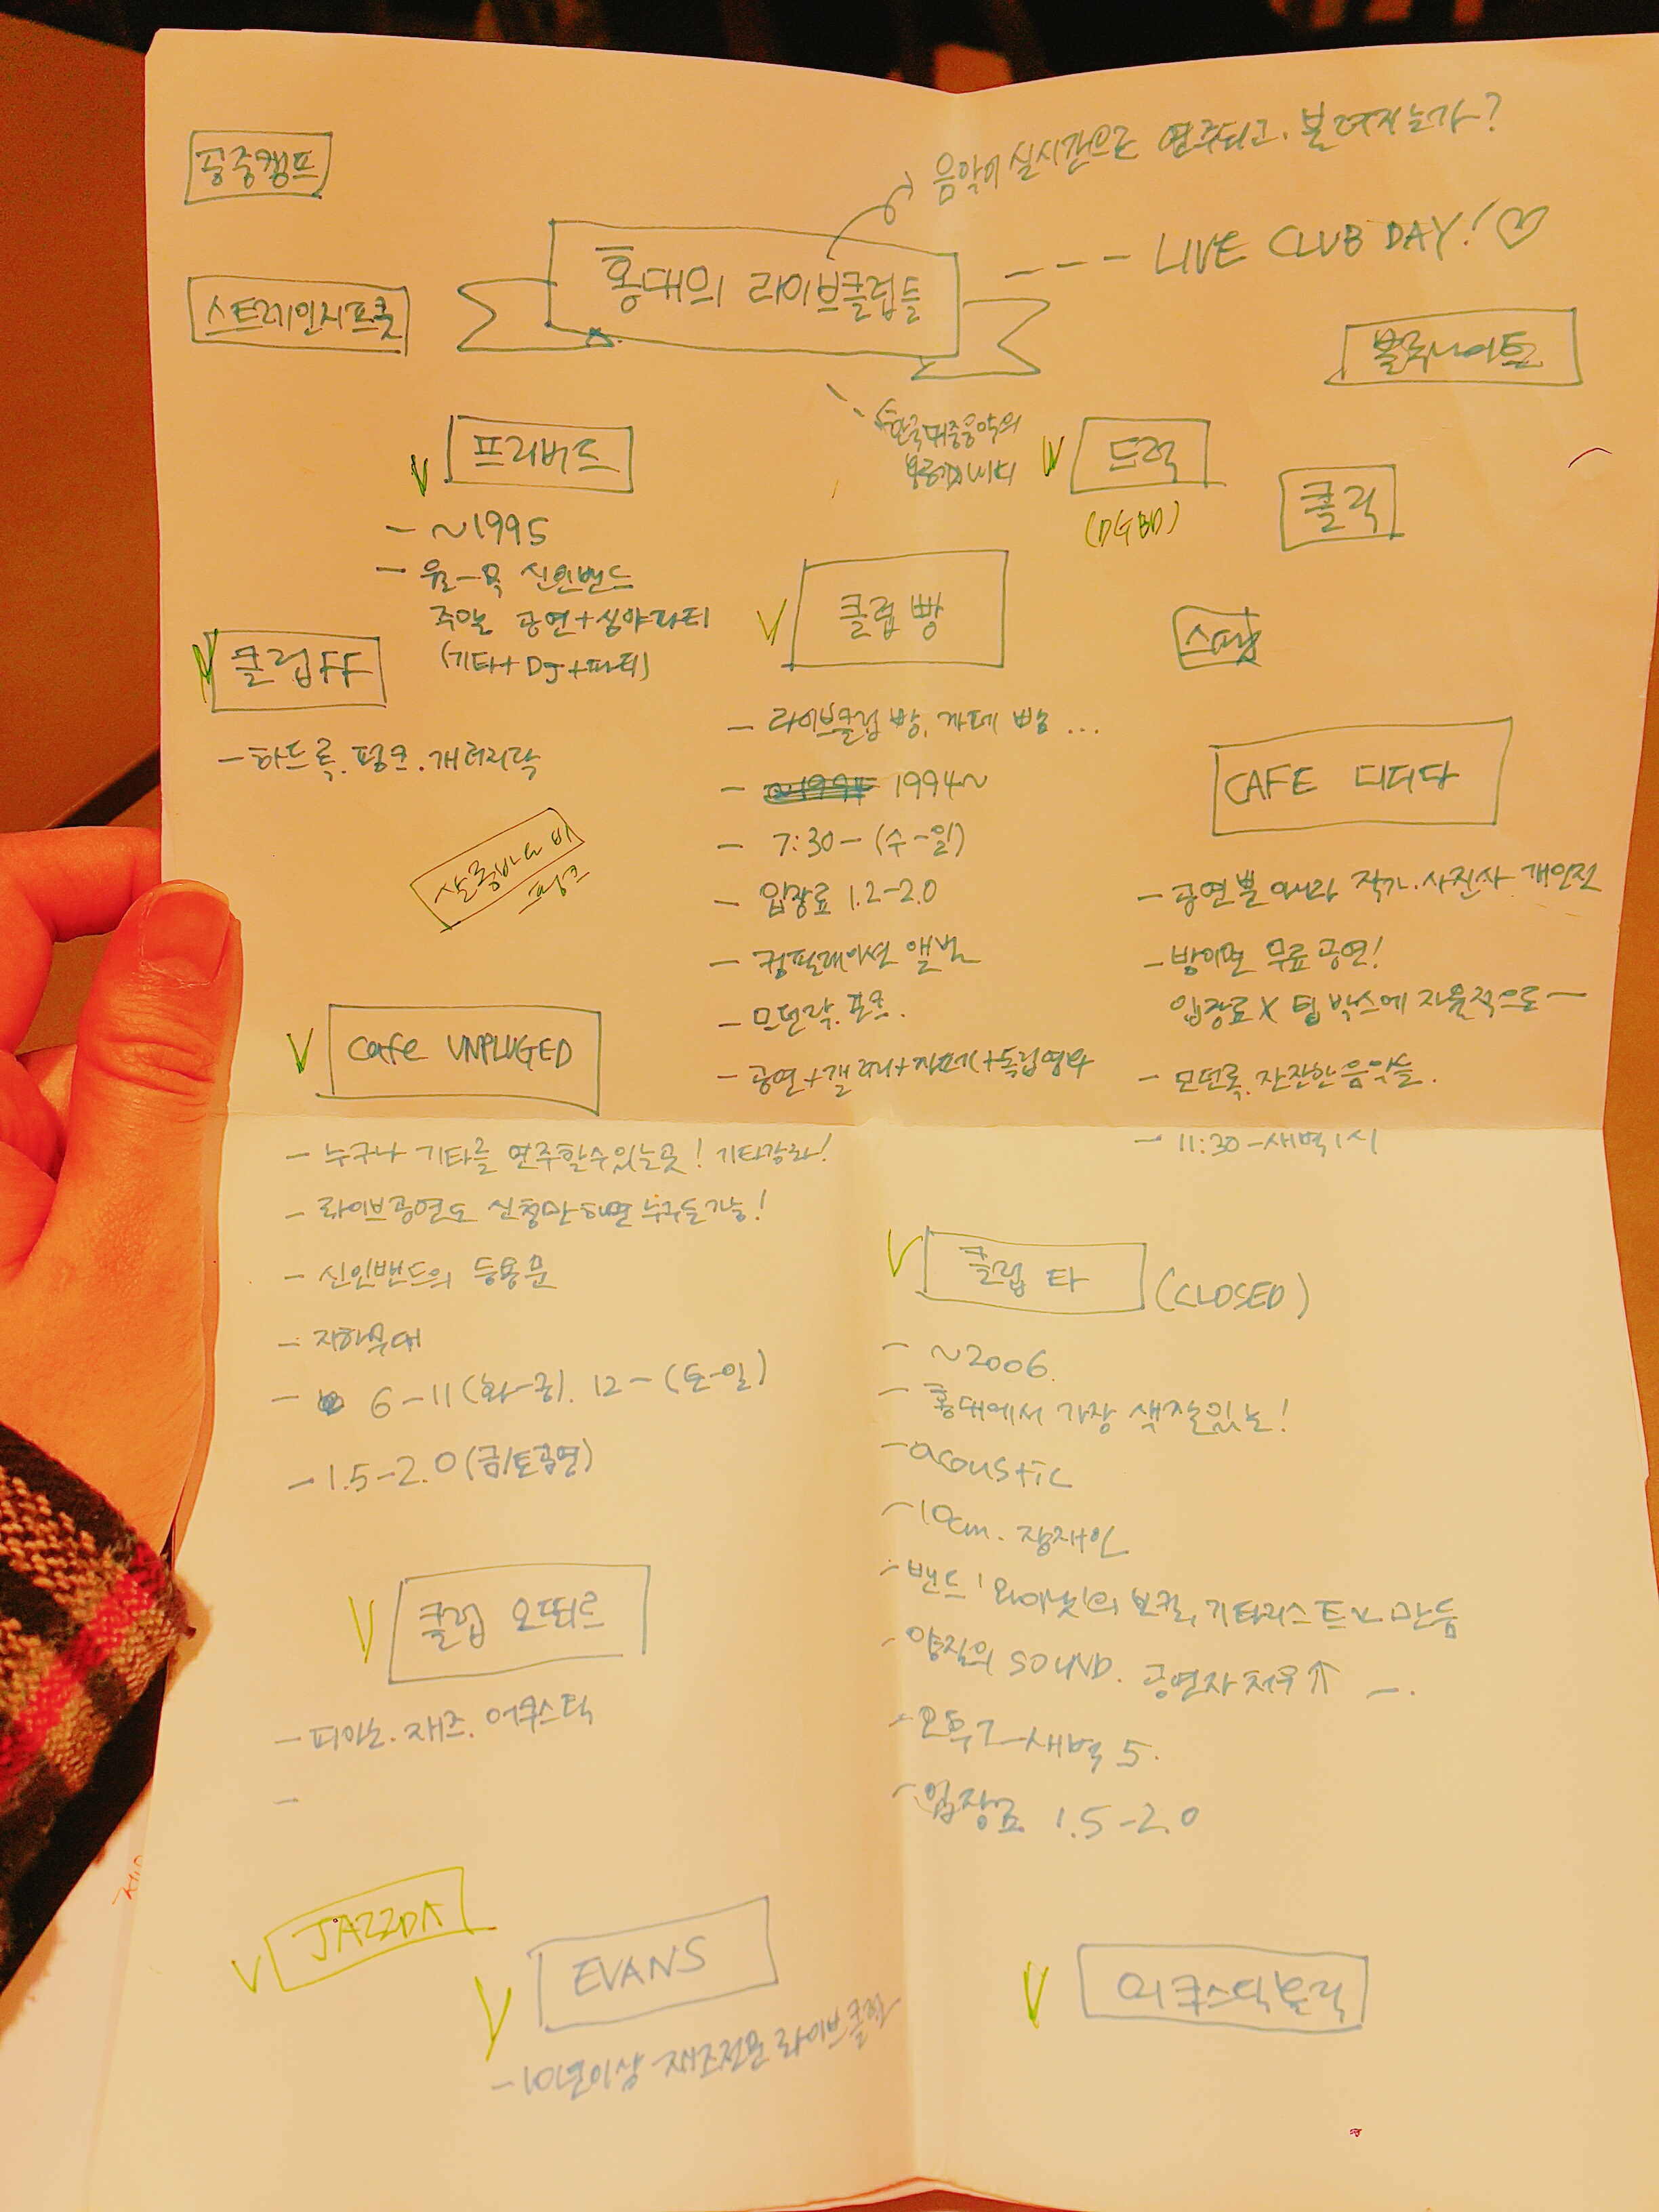 공중캠프
음악이 실시간으로 연주되고, 불려지는가?
홍대의 라이브클럽들
--- LIVE CLUB DAY! ♡
스트레인지프룻
블루나이트
한국대중음악의
프리버드
- ~1995
- 월-목 신인밴드
주말 공연+심야파티
(기타+DJ+파티)
드럭
(DGBD)
클럭
클럽 빵
- 라이브클럽 빵, 카페 빵...
- 1994~
- 7:30- (수-일)
- 입장료 1.2-2.0
- 컴필레이션 앨범
- 모던락. 포크.
- 공연+갤러리+카페+독립영화
스팟
클럽FF
- 하드록. 펑크. 개러지락
살롱바다비
펑크
CAFE 디디다
- 공연뿐 아니라 작가.사진사 개인전
- 밤이면 무료공연!
입장료 X 팁박스에 자율적으로 -
- 모던록. 잔잔한 음악들.
- 11:30-새벽1시
cafe UNPLUGED
- 누구나 기타를 연주할수있는곳! 기타강좌!
- 라이브공연도 신청만하면 누구든가능!
- 신인밴드의 등용문
- 지하무대
- 6-11(화-금). 12-(토-일)
- 1.5-2.0(금/토공연)
클럽 타 (CLOSED)
- ~2006.
- 홍대에서 가장 색깔있는!
- acoustic
- 10cm. 장재인
- 밴드 '와이낫'의 보컬, 기타리스트가 만듬
- 양질의 SOUND. 공연자 처우↑ -.
- 오후7-새벽 5.
- 입장료 1.5-2.0
클럽 오뙤르
- 피아노. 재즈. 어쿠스틱
-
JAZZDA
EVANS
- 10년이상 재즈전문 라이브클럽
어쿠스틱블럭